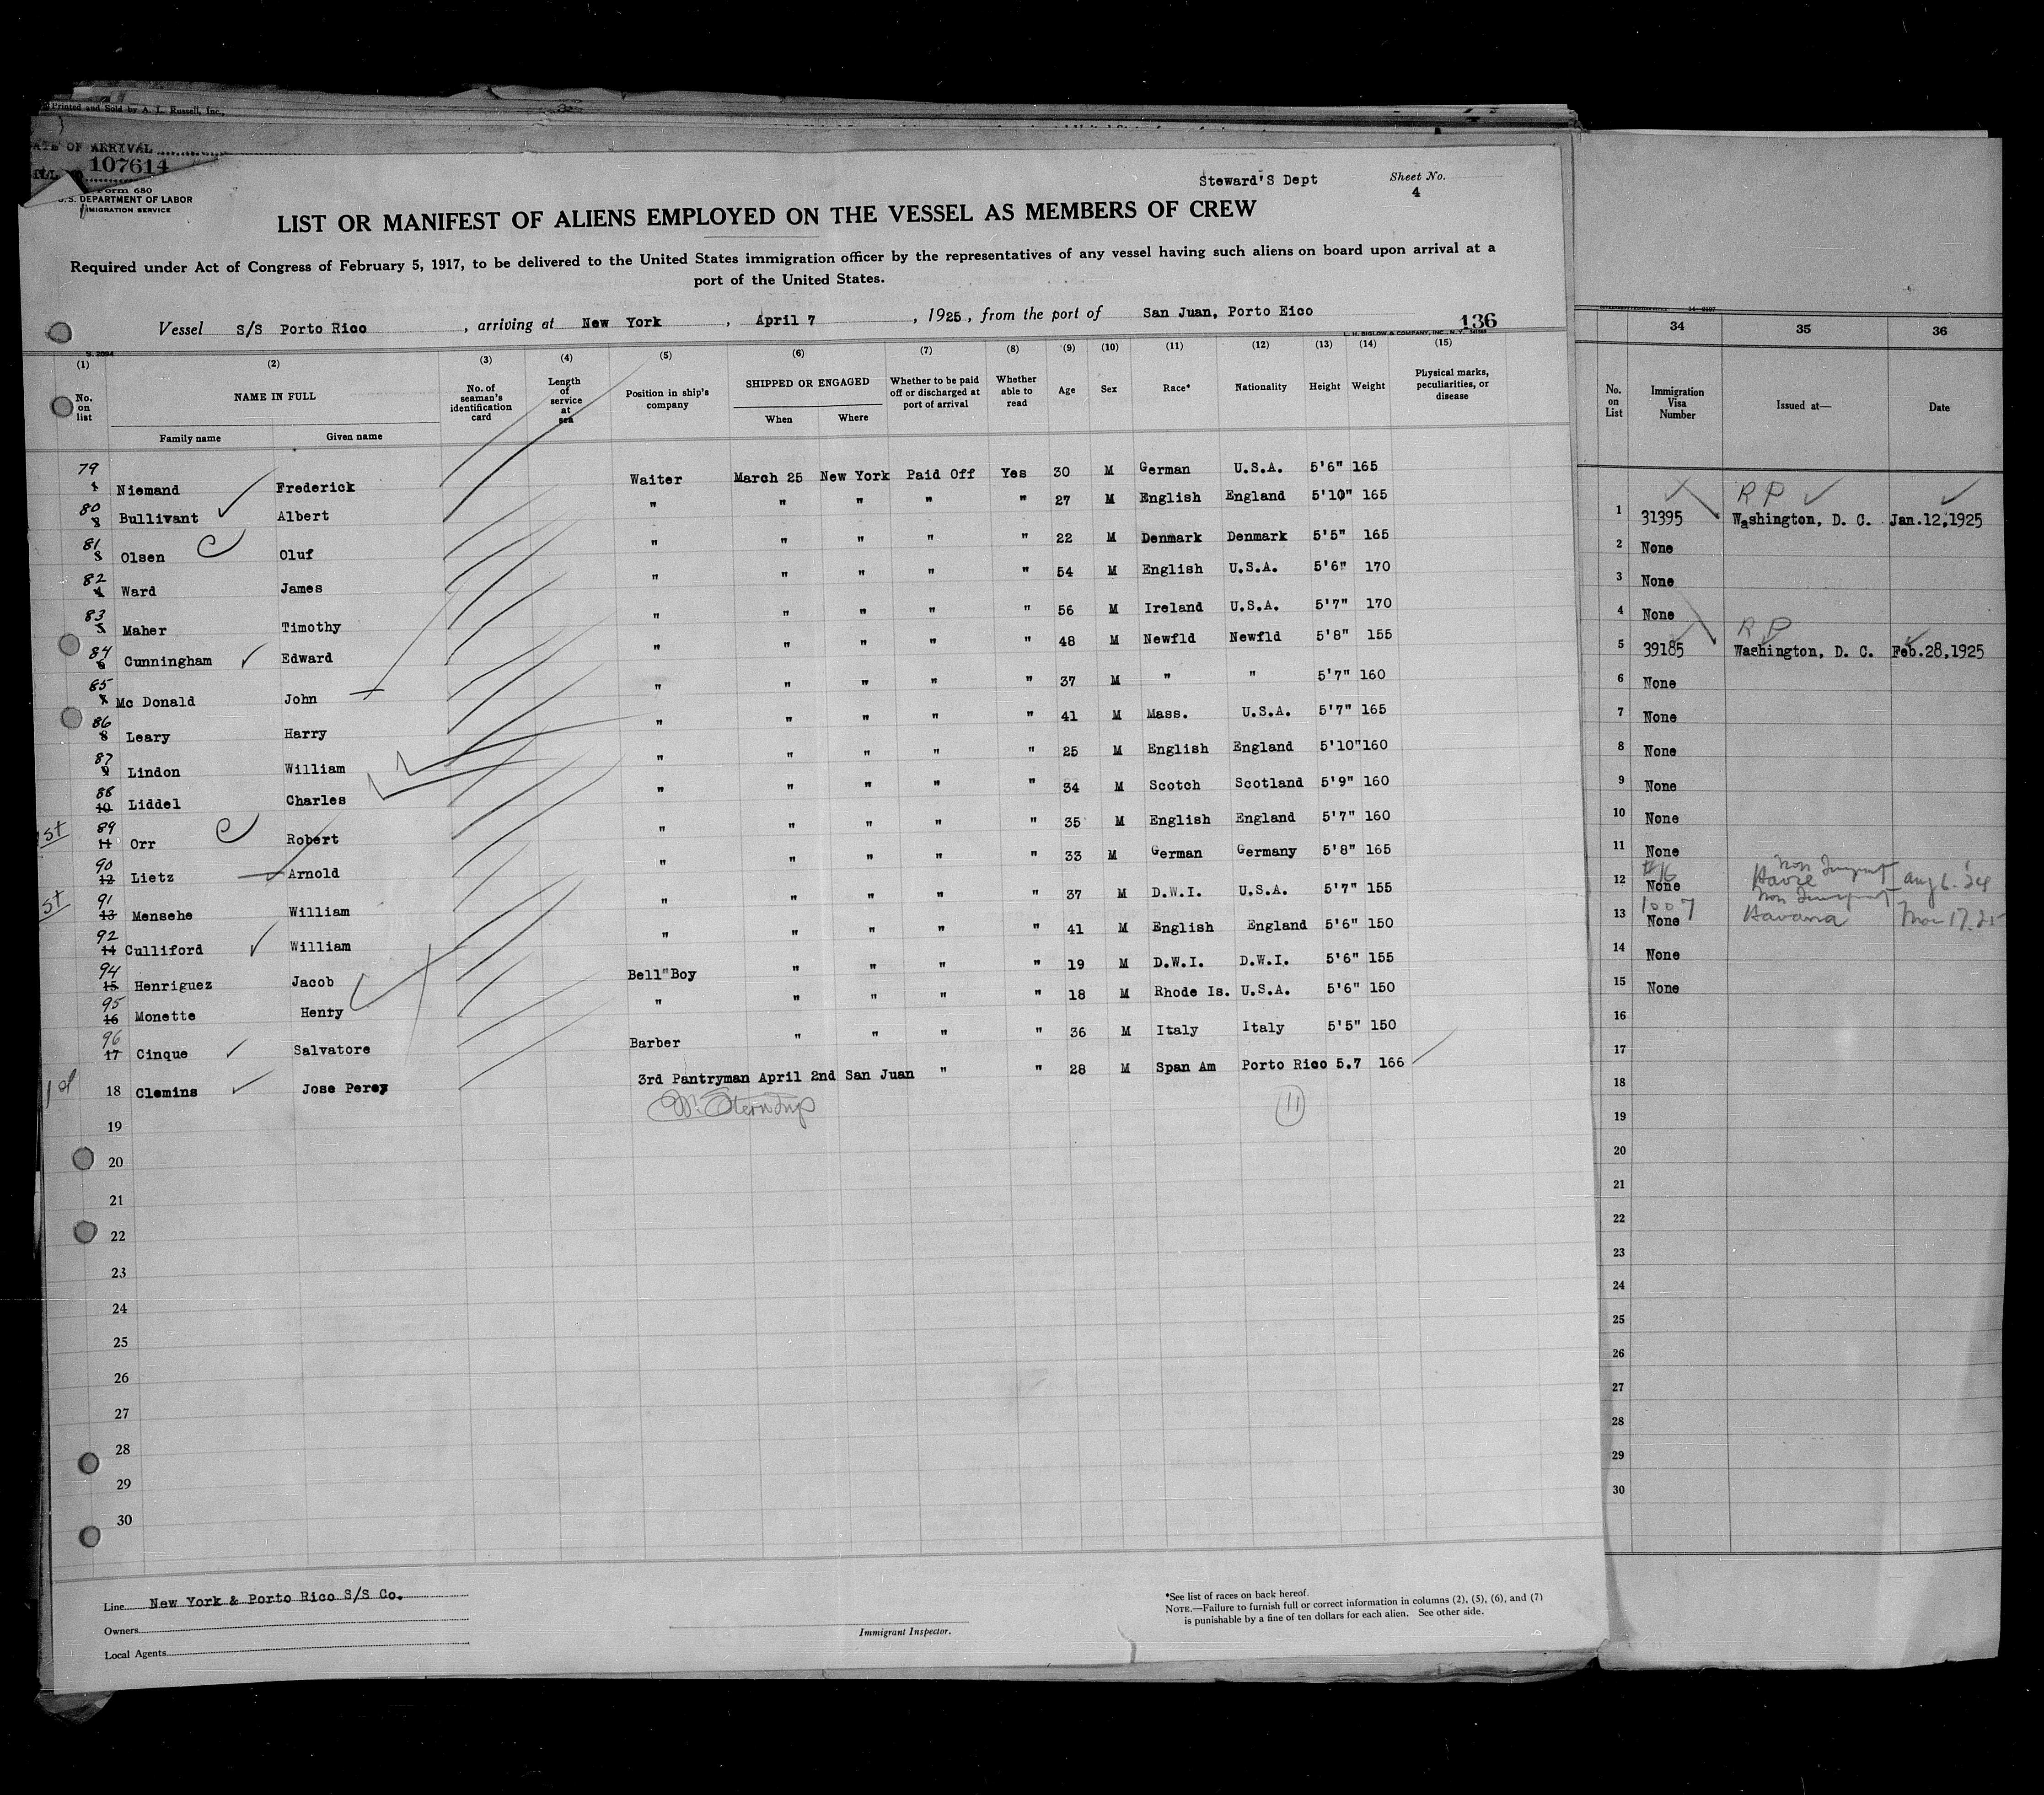 Printed and Sold by A. L. Russell, Inc.,
DATE OF ARRIVAL
107614
Form 680
U.S. DEPARTMENT OF LABOR
IMMIGRATION SERVICE
Steward'S Dept
Sheet No.
4
LIST OR MANIFEST OF ALIENS EMPLOYED ON THE VESSEL AS MEMBERS OF CREW
Required under Act of Congress of February 5, 1917, to be delivered to the United States immigration officer by the representatives of any vessel having such aliens on board upon arrival at a
port of the United States.
Vessel S/S Porto Rico , arriving at New York , April 7 , 1925, from the port of San Juan, Porto Eico
136
L. H. BIGLOW & COMPANY, INC., N. Y.
(1) (2) (3) (4) (5) (6) (7) (8) (9) (10) (11) (12) (13) (14) (15)
No. on list NAME IN FULL No. of seaman's identification card Length of service at sea Position in ship's company SHIPPED OR ENGAGED Whether to be paid off or discharged at port of arrival Whether able to read Age Sex Race* Nationality Height Weight Physical marks, peculiarities, or disease
Family name Given name When Where
79 1 Niemand Frederick Waiter March 25 New York Paid Off Yes 30 M German U.S.A. 5'6" 165
80 2 Bullivant Albert " " " " " 27 M English England 5'10" 165
81 3 Olsen Oluf " " " " " 22 M Denmark Denmark 5'5" 165
82 4 Ward James " " " " " 54 M English U.S.A. 5'6" 170
83 5 Maher Timothy " " " " " 56 M Ireland U.S.A. 5'7" 170
84 6 Cunningham Edward " " " " " 48 M Newfld Newfld 5'8" 155
85 7 Mc Donald John " " " " " 37 M " " 5'7" 160
86 8 Leary Harry " " " " " 41 M Mass. U.S.A. 5'7" 165
87 9 Lindon William " " " " " 25 M English England 5'10" 160
88 10 Liddel Charles " " " " " 34 M Scotch Scotland 5'9" 160
1st 89 11 Orr Robert " " " " " 35 M English England 5'7" 160
90 12 Lietz Arnold " " " " " 33 M German Germany 5'8" 165
1st 91 13 Mensehe William " " " " " 37 M D.W.I. U.S.A. 5'7" 155
92 14 Culliford William " " " " " 41 M English England 5'6" 150
94 15 Henriguez Jacob Bell"Boy " " " " 19 M D.W.I. D.W.I. 5'6" 155
95 16 Monette Henry " " " " " 18 M Rhode Is. U.S.A. 5'6" 150
96 17 Cinque Salvatore Barber " " " " 36 M Italy Italy 5'5" 150
18 Clemins Jose Perez 3rd Pantryman April 2nd San Juan " " 28 M Span Am Porto Rico 5.7 166
11
19
20
21
22
23
24
25
26
27
28
29
30
Line New York & Porto Rico S/S Co.
Owners
Local Agents
Immigrant Inspector.
*See list of races on back hereof.
NOTE.—Failure to furnish full or correct information in columns (2), (5), (6), and (7)
is punishable by a fine of ten dollars for each alien. See other side.
34 35 36
No. on List Immigration Visa Number Issued at— Date
R P
1 31395 Washington, D. C. Jan.12,1925
2 None
3 None
4 None
R P
5 39185 Washington, D. C. Feb.28,1925
6 None
7 None
8 None
9 None
10 None
11 None
12 None Havre Aug 6. 24
1007
13 None Havana Mar 17. 25
14 None
15 None
16
17
18
19
20
21
22
23
24
25
26
27
28
29
30